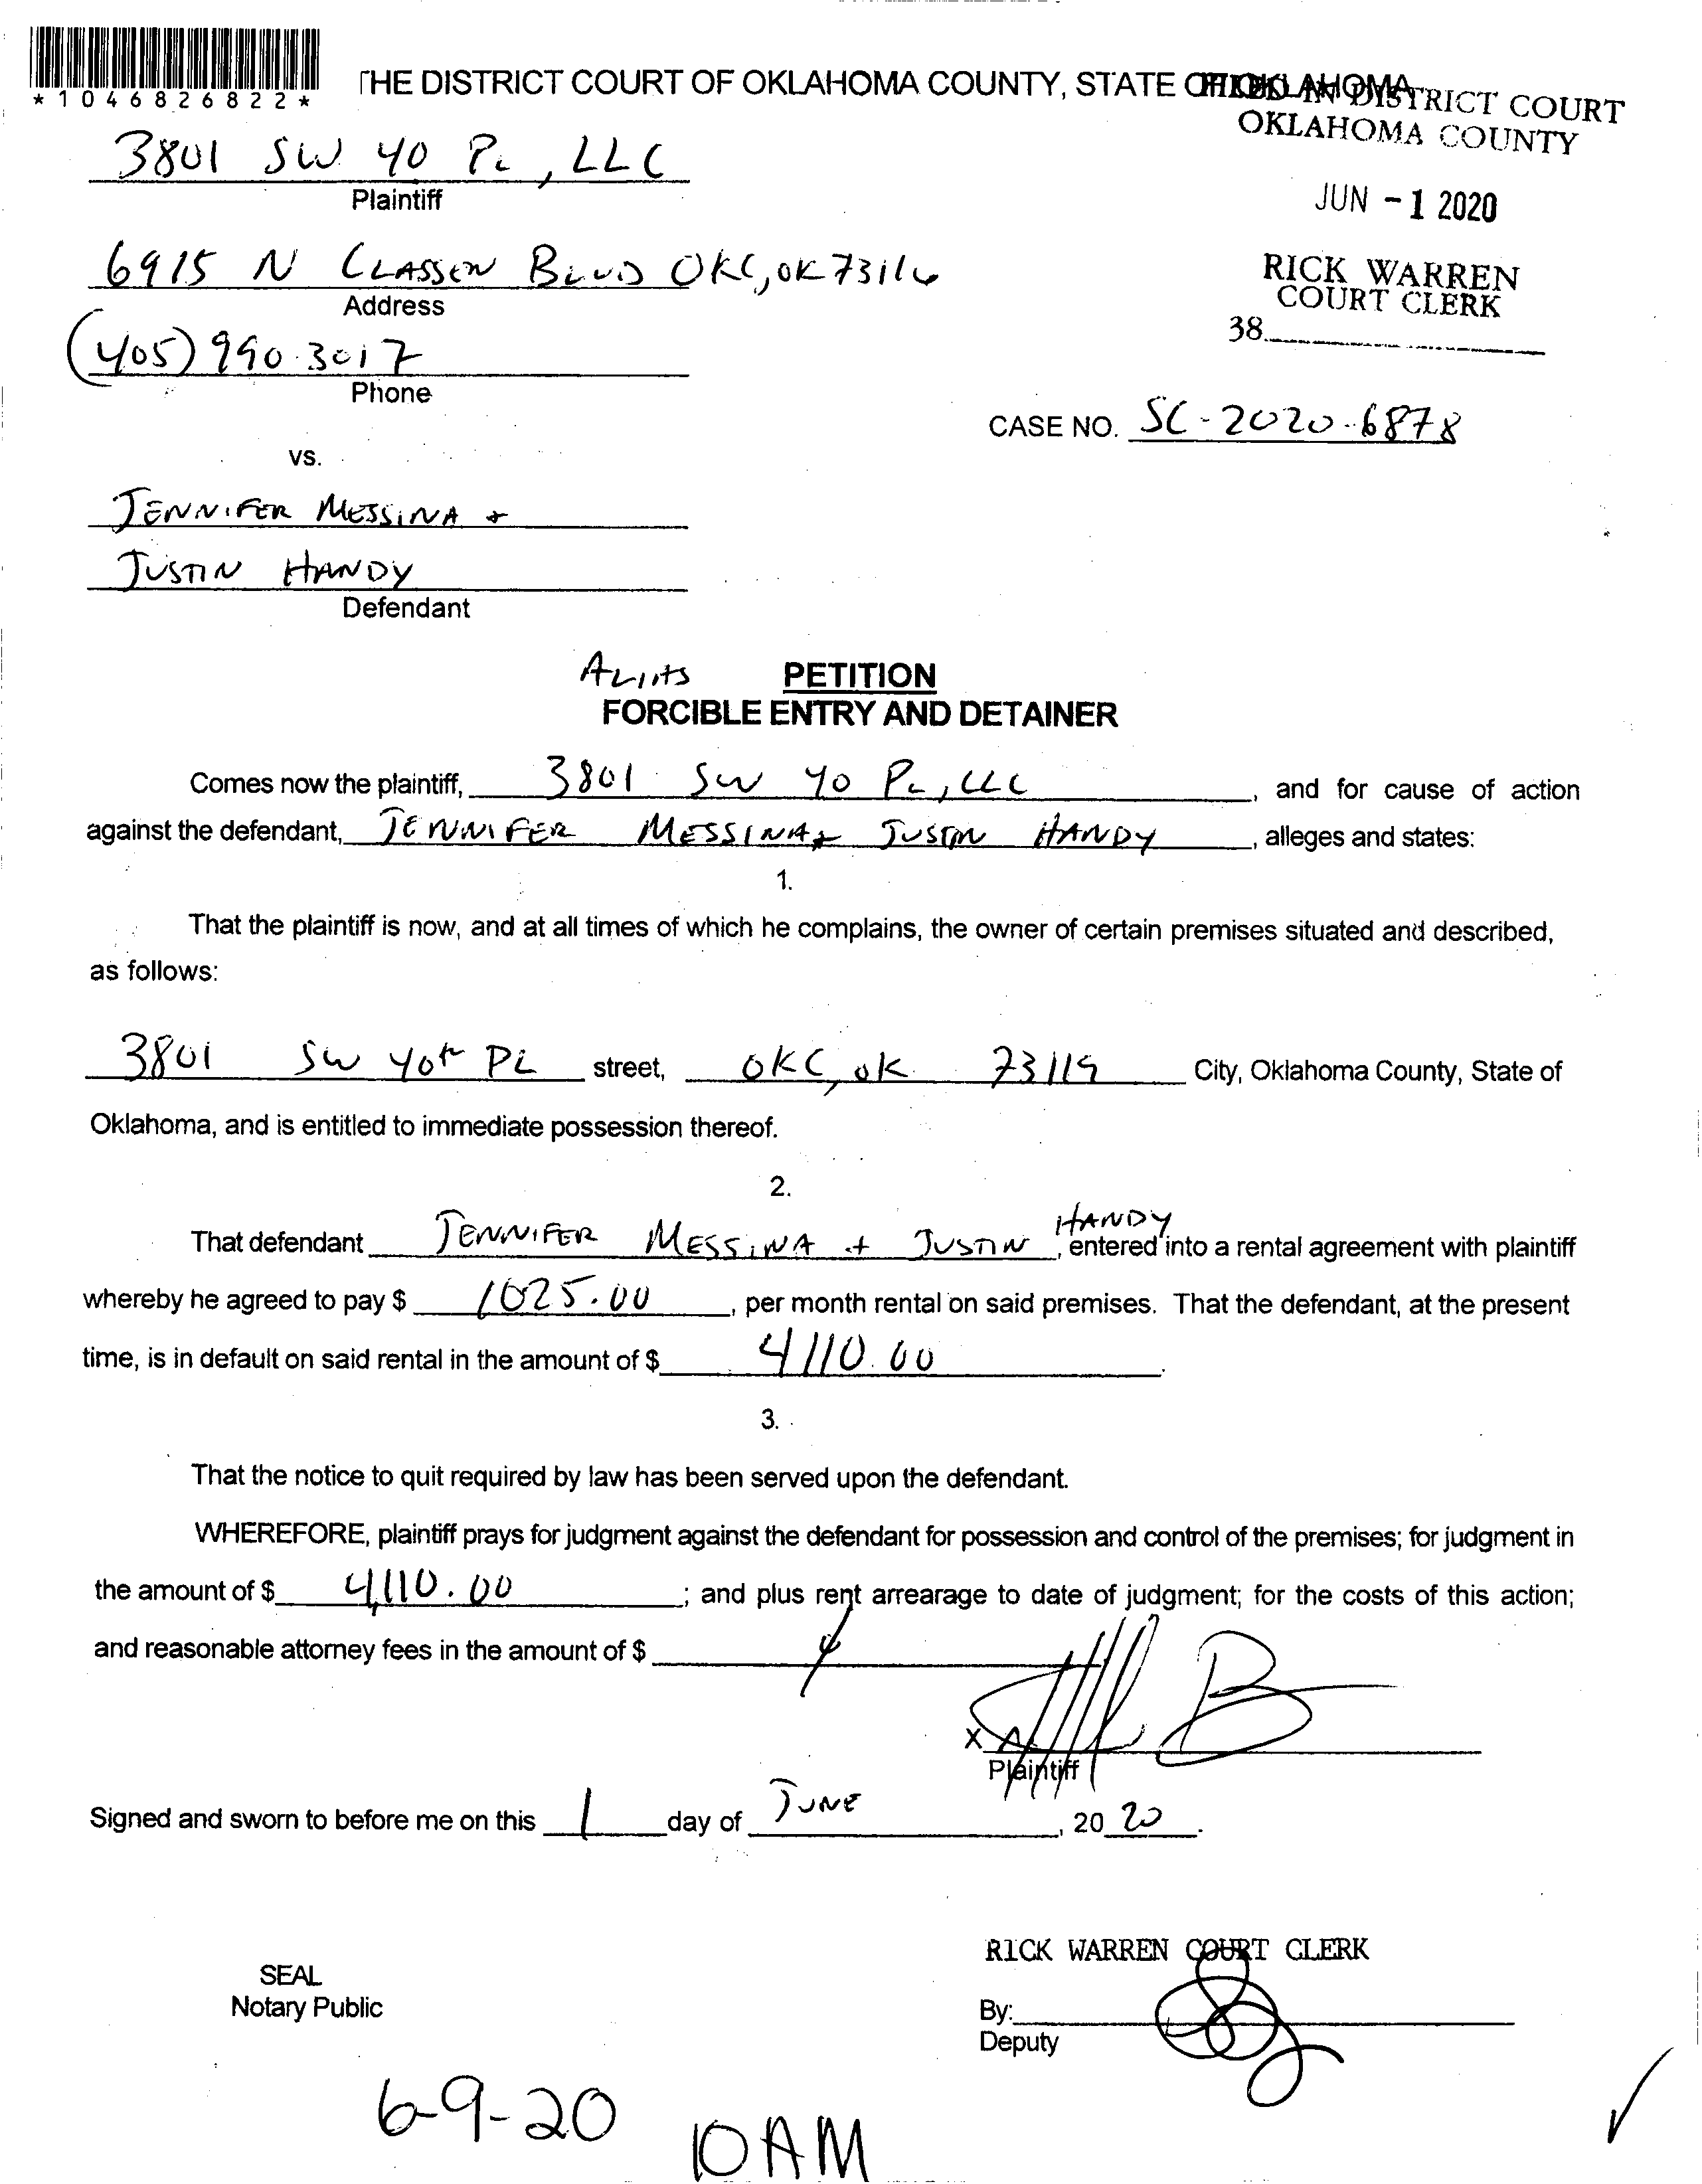 *1046826822*
THE DISTRICT COURT OF OKLAHOMA COUNTY, STATE OF OKLAHOMA
FILED IN DISTRICT COURT
OKLAHOMA COUNTY
3801 SW 40 PL, LLC
Plaintiff
JUN -1 2020
6915 N CLASSEN BLVD OKC, OK 73116
Address
RICK WARREN
COURT CLERK
38
(405) 990-3017
Phone
CASE NO. SC-2020-6878
vs.
JENNIFER MESSINA +
JUSTIN HANDY
Defendant
PETITION
FORCIBLE ENTRY AND DETAINER
Comes now the plaintiff, 3801 SW 40 PL, LLC, and for cause of action
against the defendant, JENNIFER MESSINA + JUSTIN HANDY, alleges and states:
1.
That the plaintiff is now, and at all times of which he complains, the owner of certain premises situated and described,
as follows:
3801 SW 40th PL street, OKC, OK 73119 City, Oklahoma County, State of
Oklahoma, and is entitled to immediate possession thereof.
2.
That defendant JENNIFER MESSINA + JUSTIN HANDY, entered into a rental agreement with plaintiff
whereby he agreed to pay $ 1025.00, per month rental on said premises. That the defendant, at the present
time, is in default on said rental in the amount of $ 4110.00.
3.
That the notice to quit required by law has been served upon the defendant.
WHEREFORE, plaintiff prays for judgment against the defendant for possession and control of the premises; for judgment in
the amount of $ 4,110.00; and plus rent arrearage to date of judgment; for the costs of this action;
and reasonable attorney fees in the amount of $
X
Plaintiff
Signed and sworn to before me on this 1 day of JUNE, 20 20.
RICK WARREN COURT CLERK
SEAL
Notary Public
By:
Deputy
6-9-20 10AM